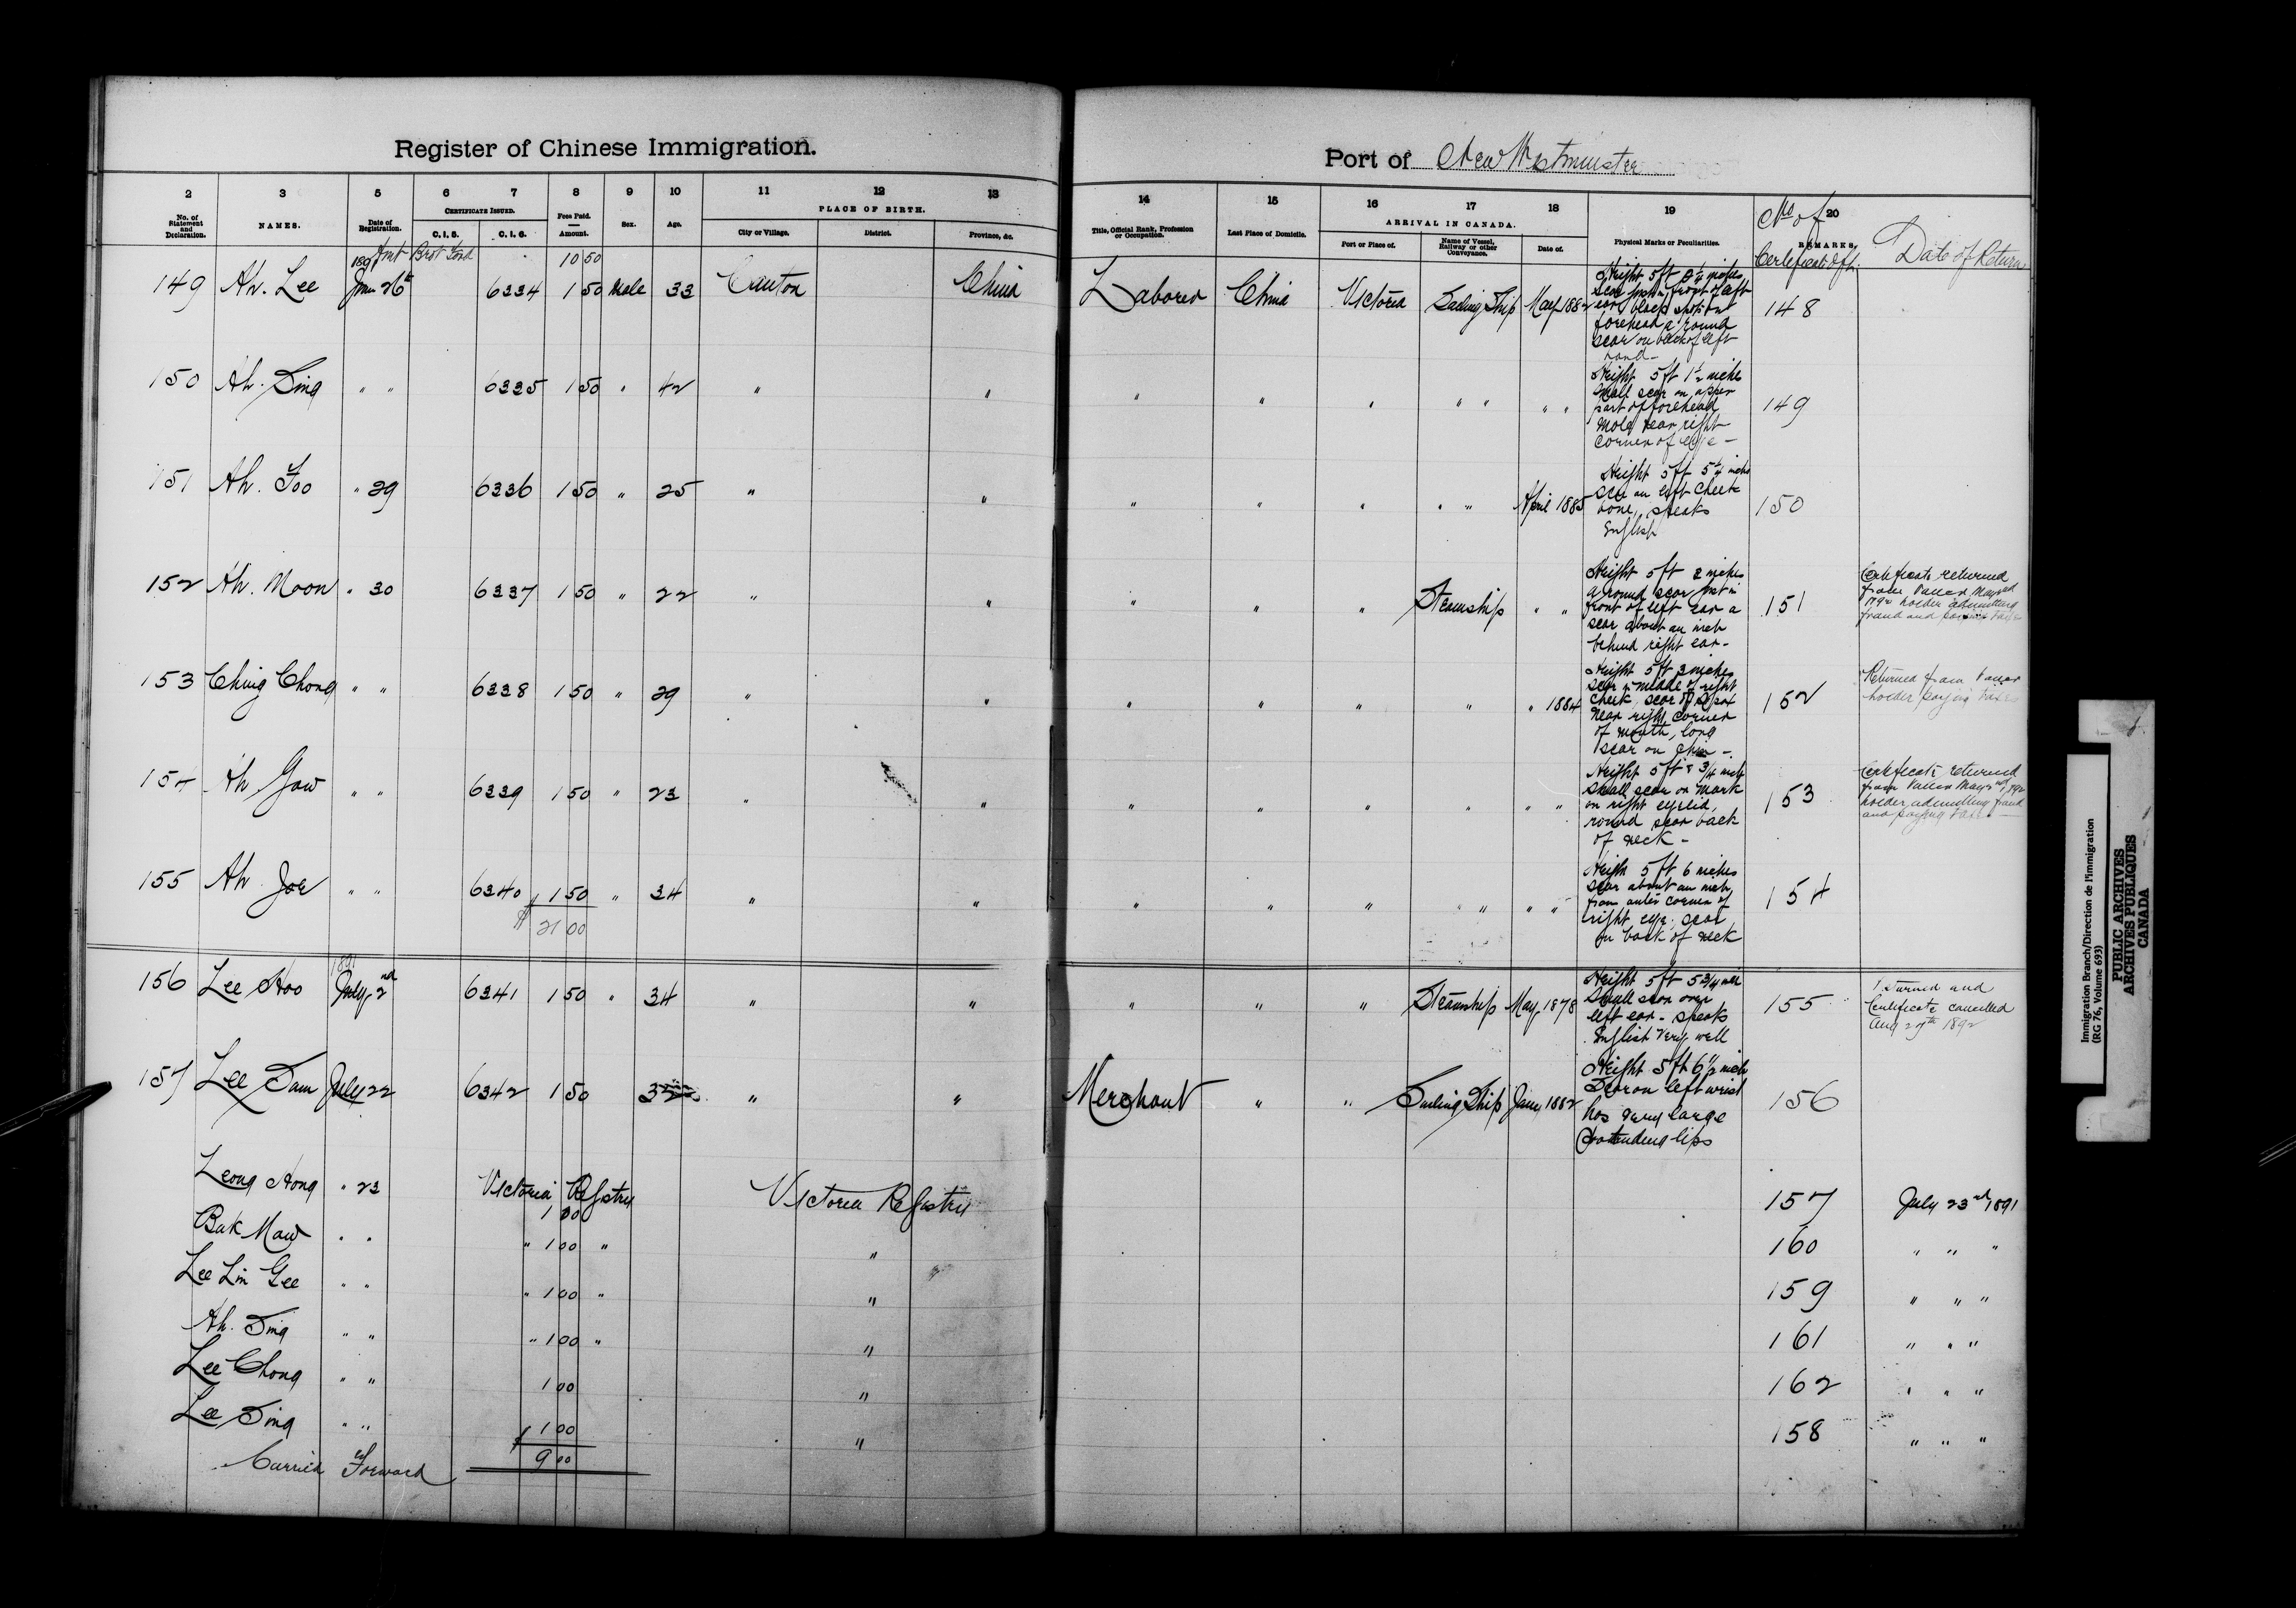 Register of Chinese Immigration.
Port of New Westminster
2 3 5 6 7 8 9 10 11 12 13 14 15 16 17 18 19 20
No. of Statement and Declaration.
NAMES.
Date of Registration.
CERTIFICATE ISSUED.
C. I. 5.
C. I. 6.
Fees Paid. Amount.
Sex.
Age.
PLACE OF BIRTH.
City or Village.
District.
Province, &c.
Title, Official Rank, Profession or Occupation.
Last Place of Domicile.
ARRIVAL IN CANADA.
Port or Place of.
Name of Vessel, Railway or other Conveyance.
Date of.
Physical Marks or Peculiarities.
REMARKS.
No of
Certificate
Date of Return
1891 Amt Brot Ford 10 50
149 Ah. Lee June 26th 6334 1 50 Male 33 Canton China Laborer China Victoria Sailing Ship May 1882
Height 5 ft inches
scar front of left
ear, black spot on
forehead a round
scar on back of left
hand -
148
150 Ah. Sing " " 6335 1 50 " 42 " " " " " " " " "
Height 5 ft 1½ inches
Small scar on upper
part of forehead
Mole near right
corner of eye -
149
151 Ah. Foo " 29 6336 1 50 " 25 " " " " " " " April 1885
Height 5 ft 5¼ inches
scar on left cheek
bone, speaks
English
150
152 Ah. Moon " 30 6337 1 50 " 22 " " " " " Steamship " "
Height 5 ft 2 inches
a round scar just in
front of left ear a
scar about an inch
behind right ear -
151
Certificate returned
from Vancr May 2nd
1892 holder admitting
fraud and paying taxes
153 Ching Chong " " 6338 1 50 " 29 " " " " " " " 1884
Height 5 ft 3 inches
scar in middle of right
cheek, scar of
near right corner
of mouth, long
scar on chin -
152
Returned from Vancr
holder paying taxes
154 Ah Gow " " 6339 1 50 " 23 " " " " " " " "
Height 5 ft 3/4 inch
Small scar or mark
on right eyelid,
round scar back
of neck -
153
Certificate returned
from Vancr May 2nd 1892
holder admitting fraud
and paying taxes
155 Ah Joe " " 6340 1 50 " 34 " " " " " " " " "
Heigh 5 ft 6 inches
scar about an inch
from outer corner of
right eye. scar
on back of neck
154
$ 21 00
1891
156 Lee Hoo July 2nd 6341 1 50 " 34 " " " " " Steamship May 1878
Height 5 ft 5 3/4 inch
Small scar over
left ear - speaks
English very well
155
Returned and
Certificate cancelled
Aug 27th 1892
157 Lee Sam July 22 6342 1 50 32 " " Merchant " " Sailing Ship Jany 1882
Height 5 ft 6½ inch
Scar on left wrist
has very large
lips
156
Leong Hong " 23 Victoria Registry 1 00 Victoria Registry 157 July 23rd 1891
Bak Maw " " " 1 00 " " 160 " " "
Lee Lin Gee " " " 1 00 " " 159 " " "
Ah. Sing " " " 1 00 " " 161 " " "
Lee Chong " " 1 00 " 162 " " "
Lee Sing " " 1 00 " 158 " " "
Carried Forward $ 9 00
Immigration Branch/Direction de l'immigration
(RG 76, Volume 693)
PUBLIC ARCHIVES
ARCHIVES PUBLIQUES
CANADA